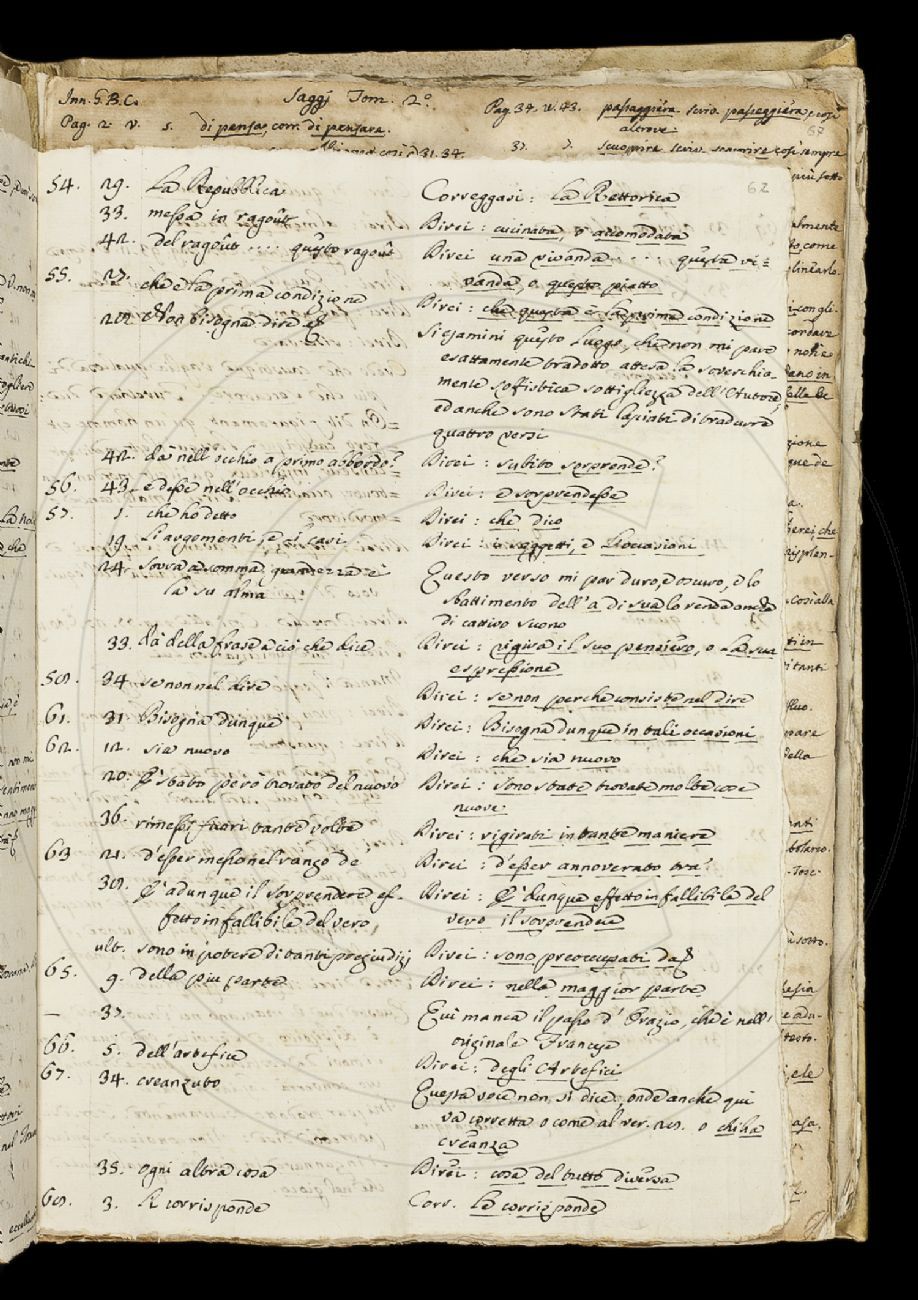 Inn. G. B. C.
Saggj Tom. 2°.
Pag. 34. v. 43. passaggiera scriv. passeggiera, e così
altrove
67
Pag. 2. v. 5. di pensa, corr. di pensare.
scuoprire scriv. scoprire così sempre
62
54. 29. La Repubblica Correggasi: La Rettorica
33. messa in ragoût Direi: cucinata, o accomodata
42. del ragoût .... questo ragoût Direi una vivanda .... questa vi=
vanda, o questo piatto
55. 27. che è la prima condizione Direi: che questa è la prima condizione
28. Non bisogna dire Si esamini questo luogo, che non mi pare
esattamente tradotto attesa la soverchia=
mente sofistica sottigliezza dell'Autore,
ed anche sono stati lasciati di tradurre
quattro versi
42. dà nell'occhio a primo abbordo? Direi: subito sorprende?
56. 43. e desse nell'occhio Direi: e sorprendesse
57. 1. che ho detto Direi: che dico
19. Li argomenti, e i casi Direi: i soggetti, e le occasioni
24. sovra a somma grandezza è
la su' alma
Questo verso mi par duro, e oscuro, e lo
sbattimento dell'a di sua lo rende anche
di cattivo suono
33. dà della frase a ciò che dice Direi: rigira il suo pensiero, o la sua
espressione
58. 34. se non nel dire Direi: se non perche consiste nel dire
61. 31. Bisogna dunque Direi: Bisogna dunque in tali occasioni
62. 12. sia nuovo Direi: che sia nuovo
20. È stato però trovato del nuovo Direi: sono state trovate molte cose
nuove
36. rimessi fuori tante volte Direi: rigirati in tante maniere
63. 21. d'esser messo nel rango de Direi: d'esser annoverato tra'
38. È adunque il sorprendere ef-
fetto infallibile del vero,
Direi: È dunque effetto infallibile del
vero il sorprendere
ult. sono in potere di tanti pregiudizj Direi: sono preoccupati da
65. 9. della piu parte Direi: nella maggior parte
— 37. Qui manca il passo d'Orazio, che è nell'
originale Francese
66. 5. dell'artefice Direi: degli Artefici
67. 34. creanzuto Questa voce non si dice, onde anche qui
va corretta o come al ver. 28. o chi ha
creanza
35. ogni altra cosa Direi: cosa del tutto diversa
68. 3. Il corrisponde Corr. Le corrisponde